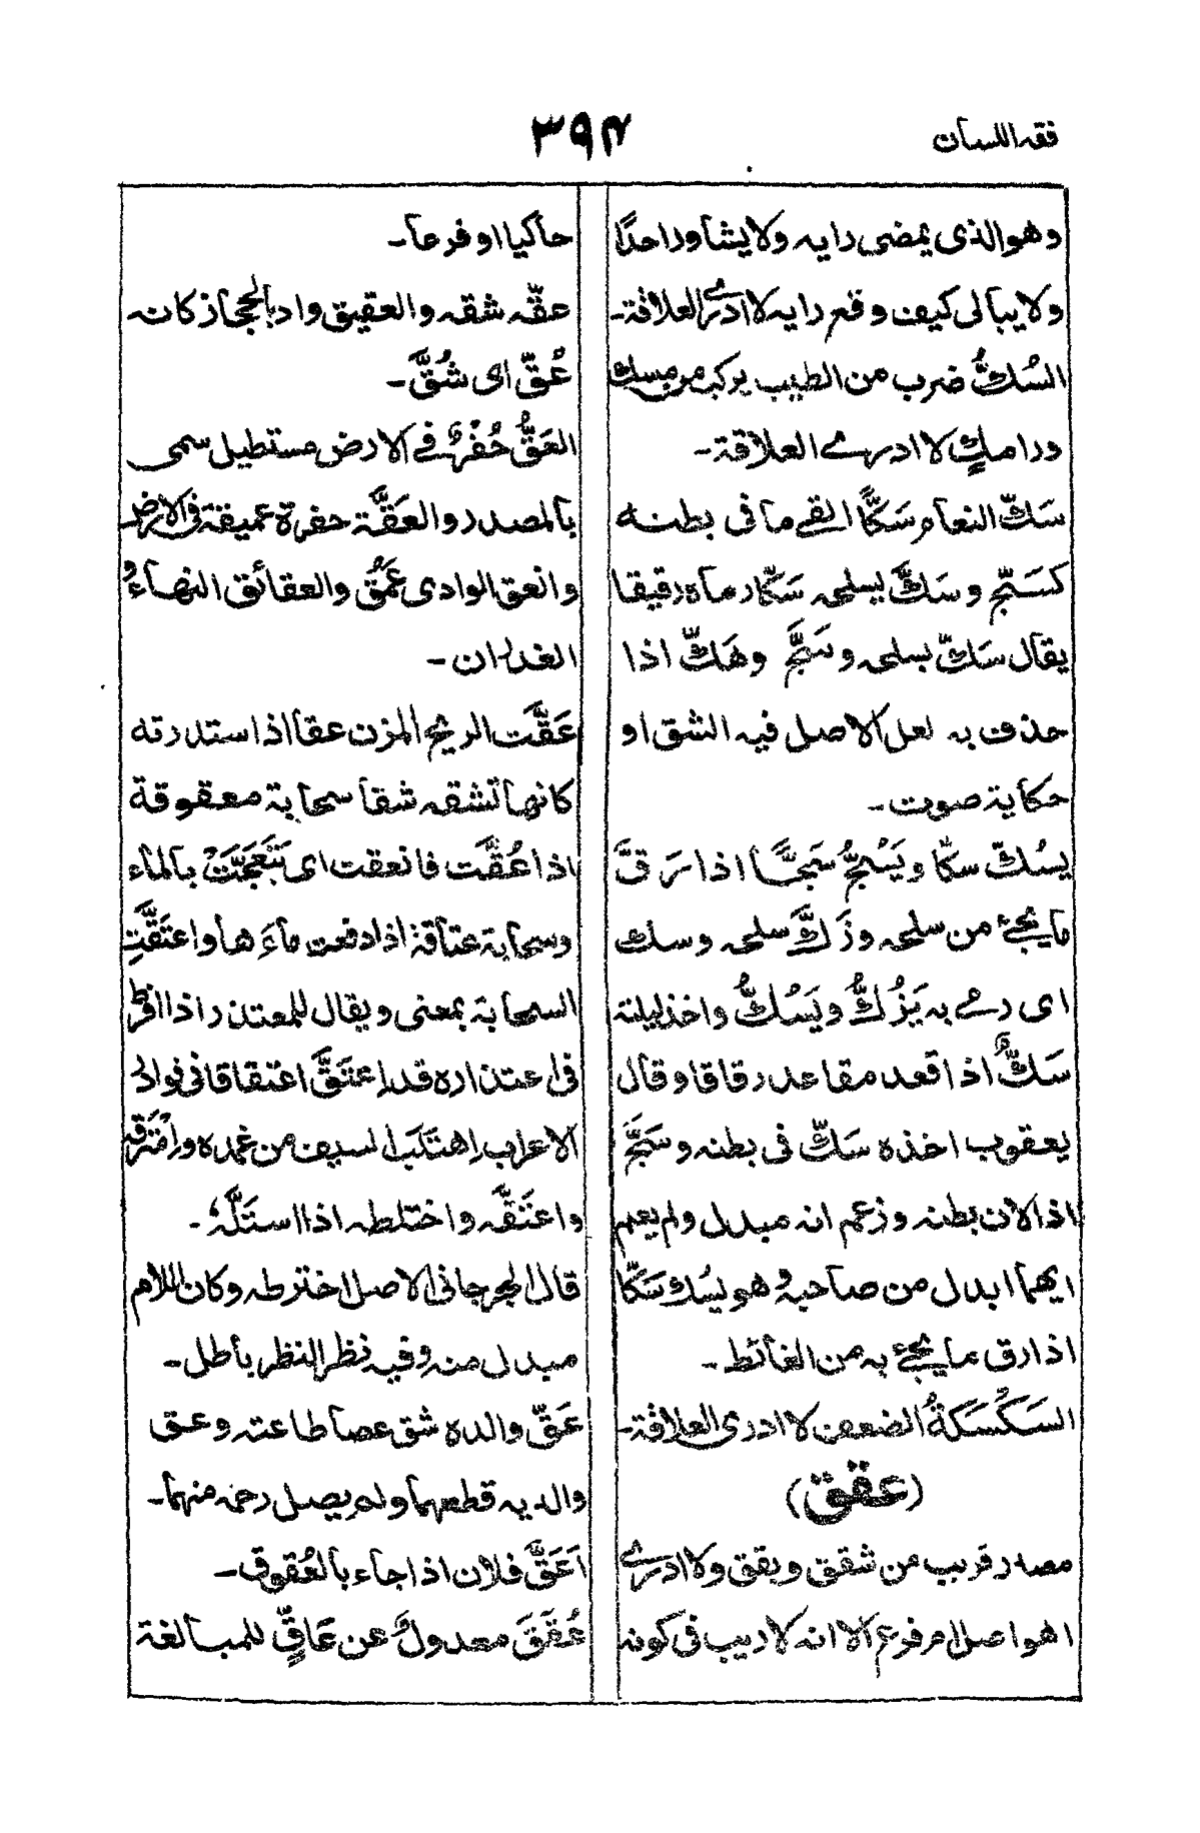 فقه اللسان
۳۹۴
وهو الذى يمضى رايه ولا يشاور احدًا
ولا يبالى كيف وقع رايه لا ادرى العلاقة-
السُكُّ ضرب من الطيب يركب من مسك
ورامكٍ لا ادرى العلاقة-
سَكّ النعام سَكًّا القى ما فى بطنه
كسَجّ وسَكَّ بسلحه سَكّا رماه رقيقا
يقال سَكّ بسلحه وسَجَّ وهَكّ اذا
حذف به لعل الاصل فيه الشق او
حكاية صوت-
يسُكّ سكّا ويَسُجُّ سَجًّا اذا رَقَّ
ما يجئ من سلحه وزَكَّ سلحه وسك
اى رمى به يَزُكُّ ويَسُكُّ واخذ ليلته
سَكٌّ اذا قعد مقاعد رقاقا وقال
يعقوب اخذه سَكّ فى بطنه وسَجَّ
اذا لان بطنه وزعم انه مبدل ولم يعلم
ايهما ابدل من صاحبه وهو يسُك سَكًّا
اذا رق ما يجئ به من الغائط-
السَكْسَكَةُ الضعف لا ادرى العلاقة-
(عقق)
مصدر قريب من شقق وبقق ولا ادرى
اهو اصل ام فرع الا انه لا ريب فى كونه
حاكيا او فرعا-
عقّه شقه والعقيق واد بالحجاز كانه
عُقّ اى شُقَّ-
العَقُّ حُفرٌ فى الارض مستطيل سمى
بالمصدر والعَقَّة حفرة عميقة فى الارض
وانعق الوادى عَمُق والعقائق النهاءُ و
الغدران-
عَقَّت الريح المزن عقا اذا استدرته
كانها تشقه شقا سحابة معقوقة
اذا عُقَّت فانعقت اى تَبَعَّجَتْ بالماء
وسحابة عقاقة اذا دفعت ماءَها واعتَقَّتِ
السحابة بمعنى ويقال للمعتذر اذا افرط
فى اعتذاره قد اِعتَقَّ اعتقاقا فى نوادر
الاعراب اِهتَلَبَ السيف من غمده واِمتَرقه
واعتَقَّه واختلطه اذا استَلَّهٗ-
قال الجرجانى الاصل اخترطه وكان اللام
مبدل منه وفيه نظر النظر باطل-
عَقّ والده شق عصا طاعته وعق
والديه قطعهما ولم يصل رحمه منهما-
اَعَقَّ فلان اذا جاء بالعُقوق-
عُقَقَ معدولٌ عن عَاقّ للمبالغة